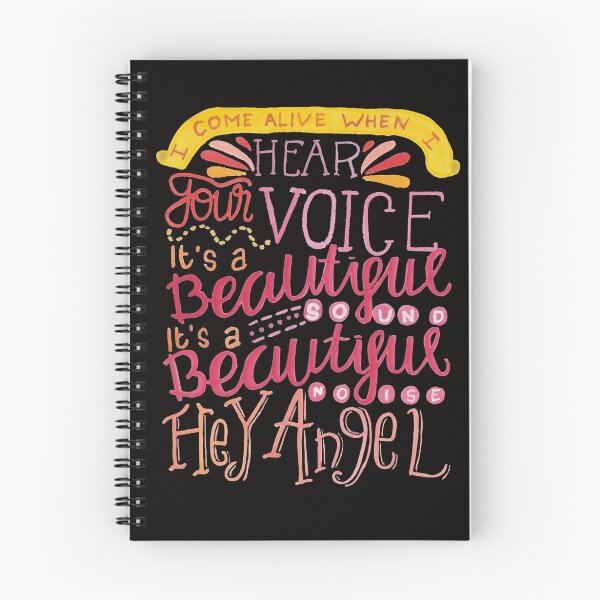 I COME ALIVE WHEN I
HEAR
Your VOICE
It's a
Beautiful
SOUND
It's a
Beautiful
NOISE
HEY ANGEL